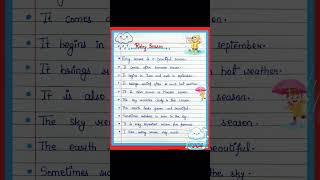 Rainy Season
Rainy season is a beautiful season.
It comes after summer season.
It begins in June and ends in september.
It brings relief after so much hot weather.
It is also known as Monsoon season.
The sky remains cloudy in this season.
The earth looks green and beautiful.
Sometimes rainbow is seen in the sky.
It is very important season for farmers.
I like rainy season very much.
It comes a
It begins in
september.
It brings
hot weather.
It is also
season.
The sky
season.
The earth
beautiful.
Sometimes